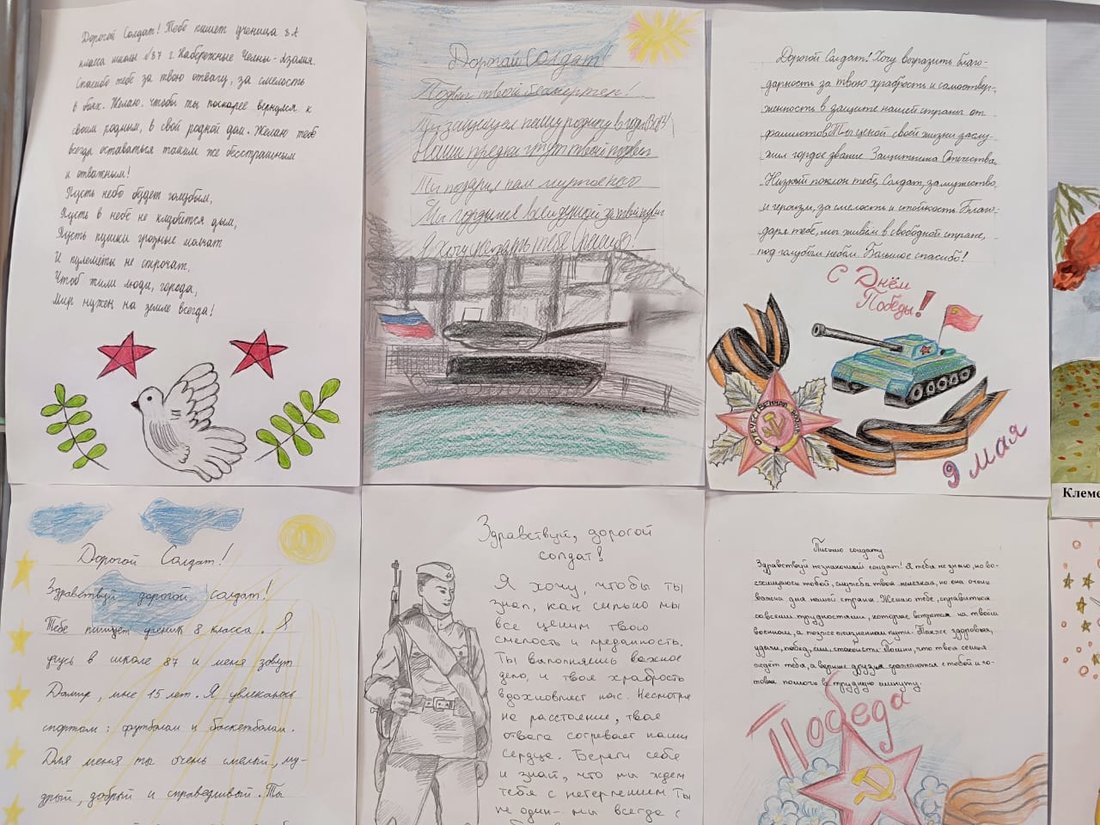 Дорогой Солдат! Тебе пишет ученица 8А
класса школы №87 г. Набережные Челны - Азалия.
Спасибо тебе за твою отвагу, за смелость
в боях. Желаю, чтобы ты поскорее вернулся к
своим родным, в свой родной дом. Желаю тебе
всегда оставаться таким же бесстрашным
и отважным!
Пусть небо будет голубым,
Пусть в небе не клубится дым,
Пусть пушки грозные молчат
И пулемёты не строчат,
Чтоб жили люди, города,
Мир нужен на земле всегда!
Дорогой Солдат!
Подвиг твой бессмертен!
защищал нашу родину в годы
Наши предки чтут твой подвиг
Ты подарил нам мирное небо
Мы гордимся всей душой за твой подвиг
Я хочу сказать тебе
Дорогой Солдат! Хочу выразить благо-
дарность за твою храбрость и самоотвер-
женность в защите нашей страны от
фашистов. Ты ценой своей жизни заслу-
жил гордое звание Защитника Отечества.
Низкий поклон тебе, Солдат, за мужество
и героизм, за смелость и стойкость. Благо-
даря тебе, мы живём в свободной стране,
под голубым небом. Большое спасибо!
С Днём
Победы!
ОТЕЧЕСТВЕННАЯ ВОЙНА
9 мая
Клеме
Дорогой Солдат!
Здравствуй дорогой солдат!
Тебе пишет ученик 8 класса. Я
учусь в школе 87 и меня зовут
Дамир, мне 15 лет. Я увлекаюсь
спортом: футболом и баскетболом.
Для меня ты очень смелый, му-
дрый, добрый и справедливый. Ты
Здравствуй, дорогой
солдат!
Я хочу, чтобы ты
знал, как сильно мы
все ценим твою
смелость и преданность.
Ты выполняешь важное
дело, и твоя храбрость
вдохновляет нас. Несмотря
на расстояние, твоя
отвага согревает наши
сердца. Береги себя
и знай, что мы ждём
тебя с нетерпением. Ты
не один - мы всегда с
Письмо солдату
Здравствуй незнакомый солдат! Я тебя не знаю, но во-
схищаюсь тобой, служба твоя нелегкая, но она очень
важна для нашей страны. Желаю тебе, справиться
со всеми трудностями, которые встретятся на твоём
военном, а позже жизненном пути. Также здоровья,
удачи, побед, сил, стойкости. Помни, что твоя семья
ждёт тебя, а верные друзья сражаются с тобой и го-
товы помочь в трудную минуту.
Победа